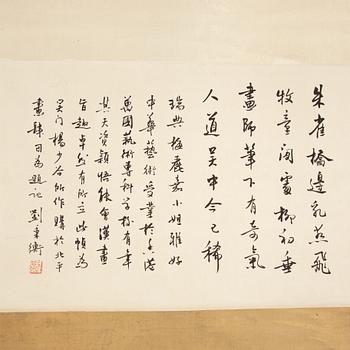 朱雀橋邊乳燕飛
牧童閒處柳初垂
畫師筆下有奇氣
人道吳中今已稀
瑞典梅麗嘉小姐雅好
中華藝術受業於香港
萬國藝術專科學校有年
其天資穎悟能會漢畫
旨趣卓然有所立此幀為
吳門楊少谷所作購於北平
畫肆囙為題記劉秉衡